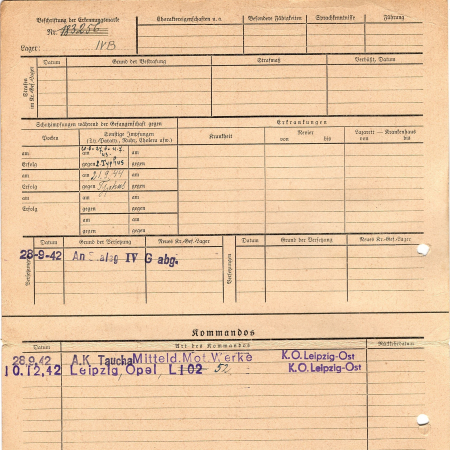 Beschriftung der Erkennungsmarke
Nr. 183256
Lager: IVB
Charaktereigenschaften u. s.
Besondere Fähigkeiten
Sprachkenntnisse
Führung
Strafen im Kr.-Gef.-Lager
Datum
Grund der Bestrafung
Strafmaß
Verbüßt, Datum
Schutzimpfungen während der Gefangenschaft gegen
Erkrankungen
Pocken
Sonstige Impfungen
(Ty.-Paraty., Ruhr, Cholera usw.)
Krankheit
Revier
von bis
Lazarett — Krankenhaus
von bis
am am am
Erfolg gegen 2. Typhus gegen
am am 21.9.44 am
Erfolg gegen Typhus gegen
am am am
Erfolg gegen gegen
am am
gegen gegen
Versetzungen
Datum
Grund der Versetzung
Neues Kr.-Gef.-Lager
Versetzungen
Datum
Grund der Versetzung
Neues Kr.-Gef.-Lager
28-9-42 An Stalag IV G abg.
Kommandos
Datum
Art des Kommandos
Rückkehrdatum
28.9.42 A.K. Taucha Mitteld.Mot.Werke K.O.Leipzig-Ost
10.12.42 Leipzig, Opel, L102 52. K.O.Leipzig-Ost